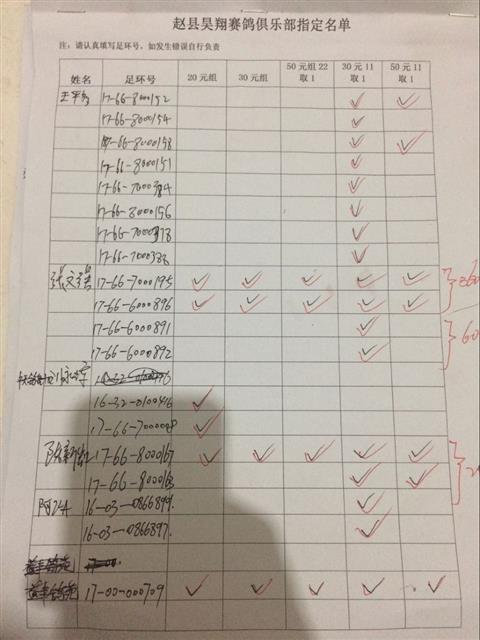 赵县昊翔赛鸽俱乐部指定名单
注：请认真填写足环号，如发生错误自行负责
姓名 足环号 20元组 30元组 50元组22取1 30元11取1 50元11取1
17-66-8000152 ✓ ✓
17-66-8000154 ✓
17-66-8000158 ✓ ✓
17-66-8000151 ✓
17-66-7000384 ✓
17-66-8000156 ✓
17-66-7000378 ✓
17-66-7000388 ✓
张文强 17-66-7000195 ✓ ✓ ✓ ✓ ✓
17-66-6000896 ✓ ✓ ✓ ✓ ✓
17-66-6000891 ✓
17-66-6000892 ✓
60
16-32-0100416 ✓
17-66-7000048 ✓
17-66-8000167 ✓ ✓ ✓ ✓ ✓
17-66-8000163 ✓ ✓
16-03-0866899 ✓
16-03-0866897 ✓
17-00-000709 ✓ ✓ ✓ ✓ ✓